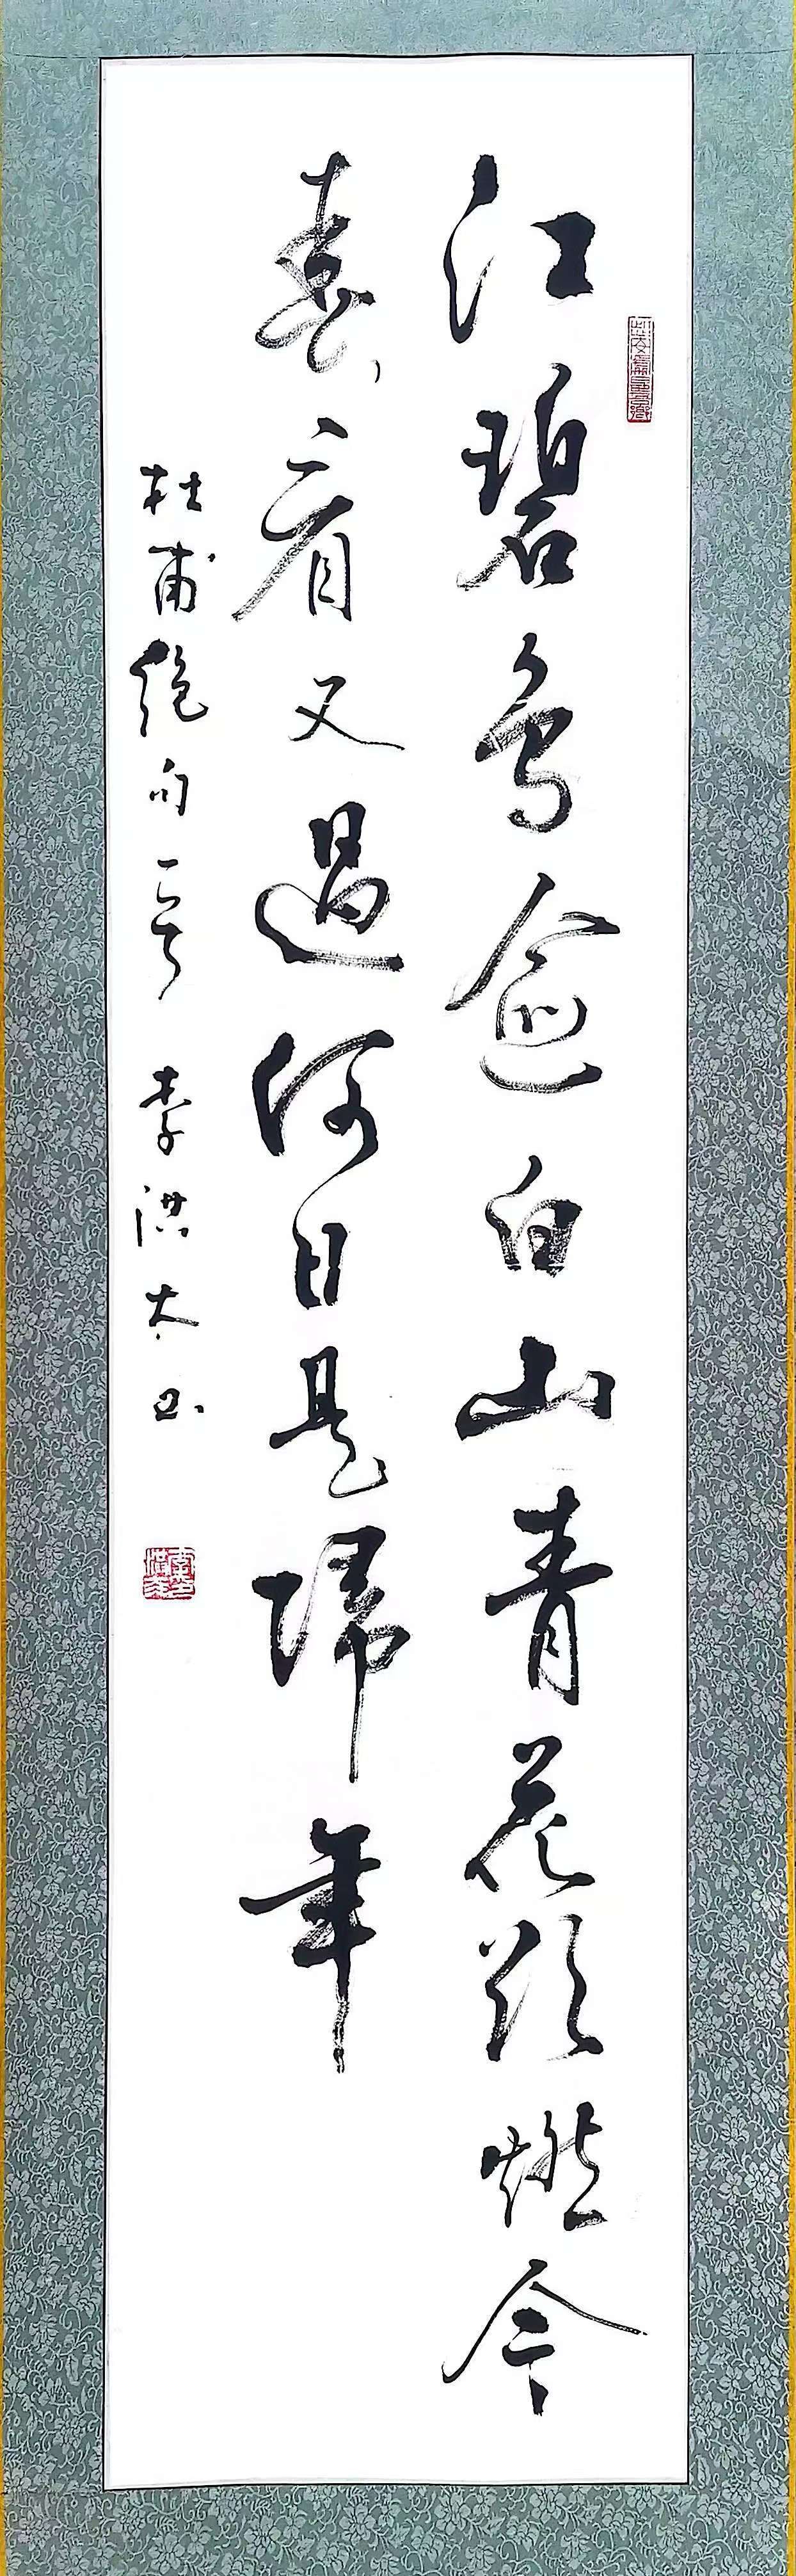 江碧鸟逾白山青花欲燃今
春看又過何日是歸年
杜甫絶句一首 李洪太书